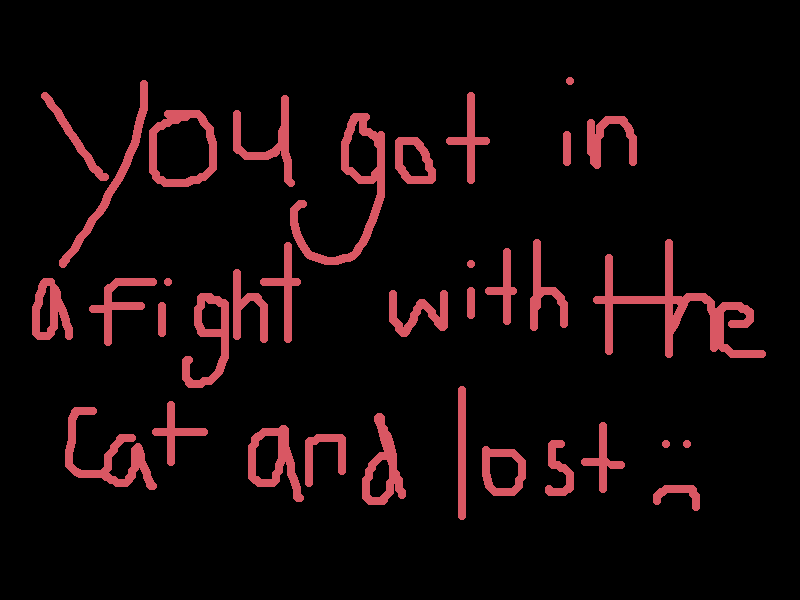 You got in
a fight with the
cat and lost :(